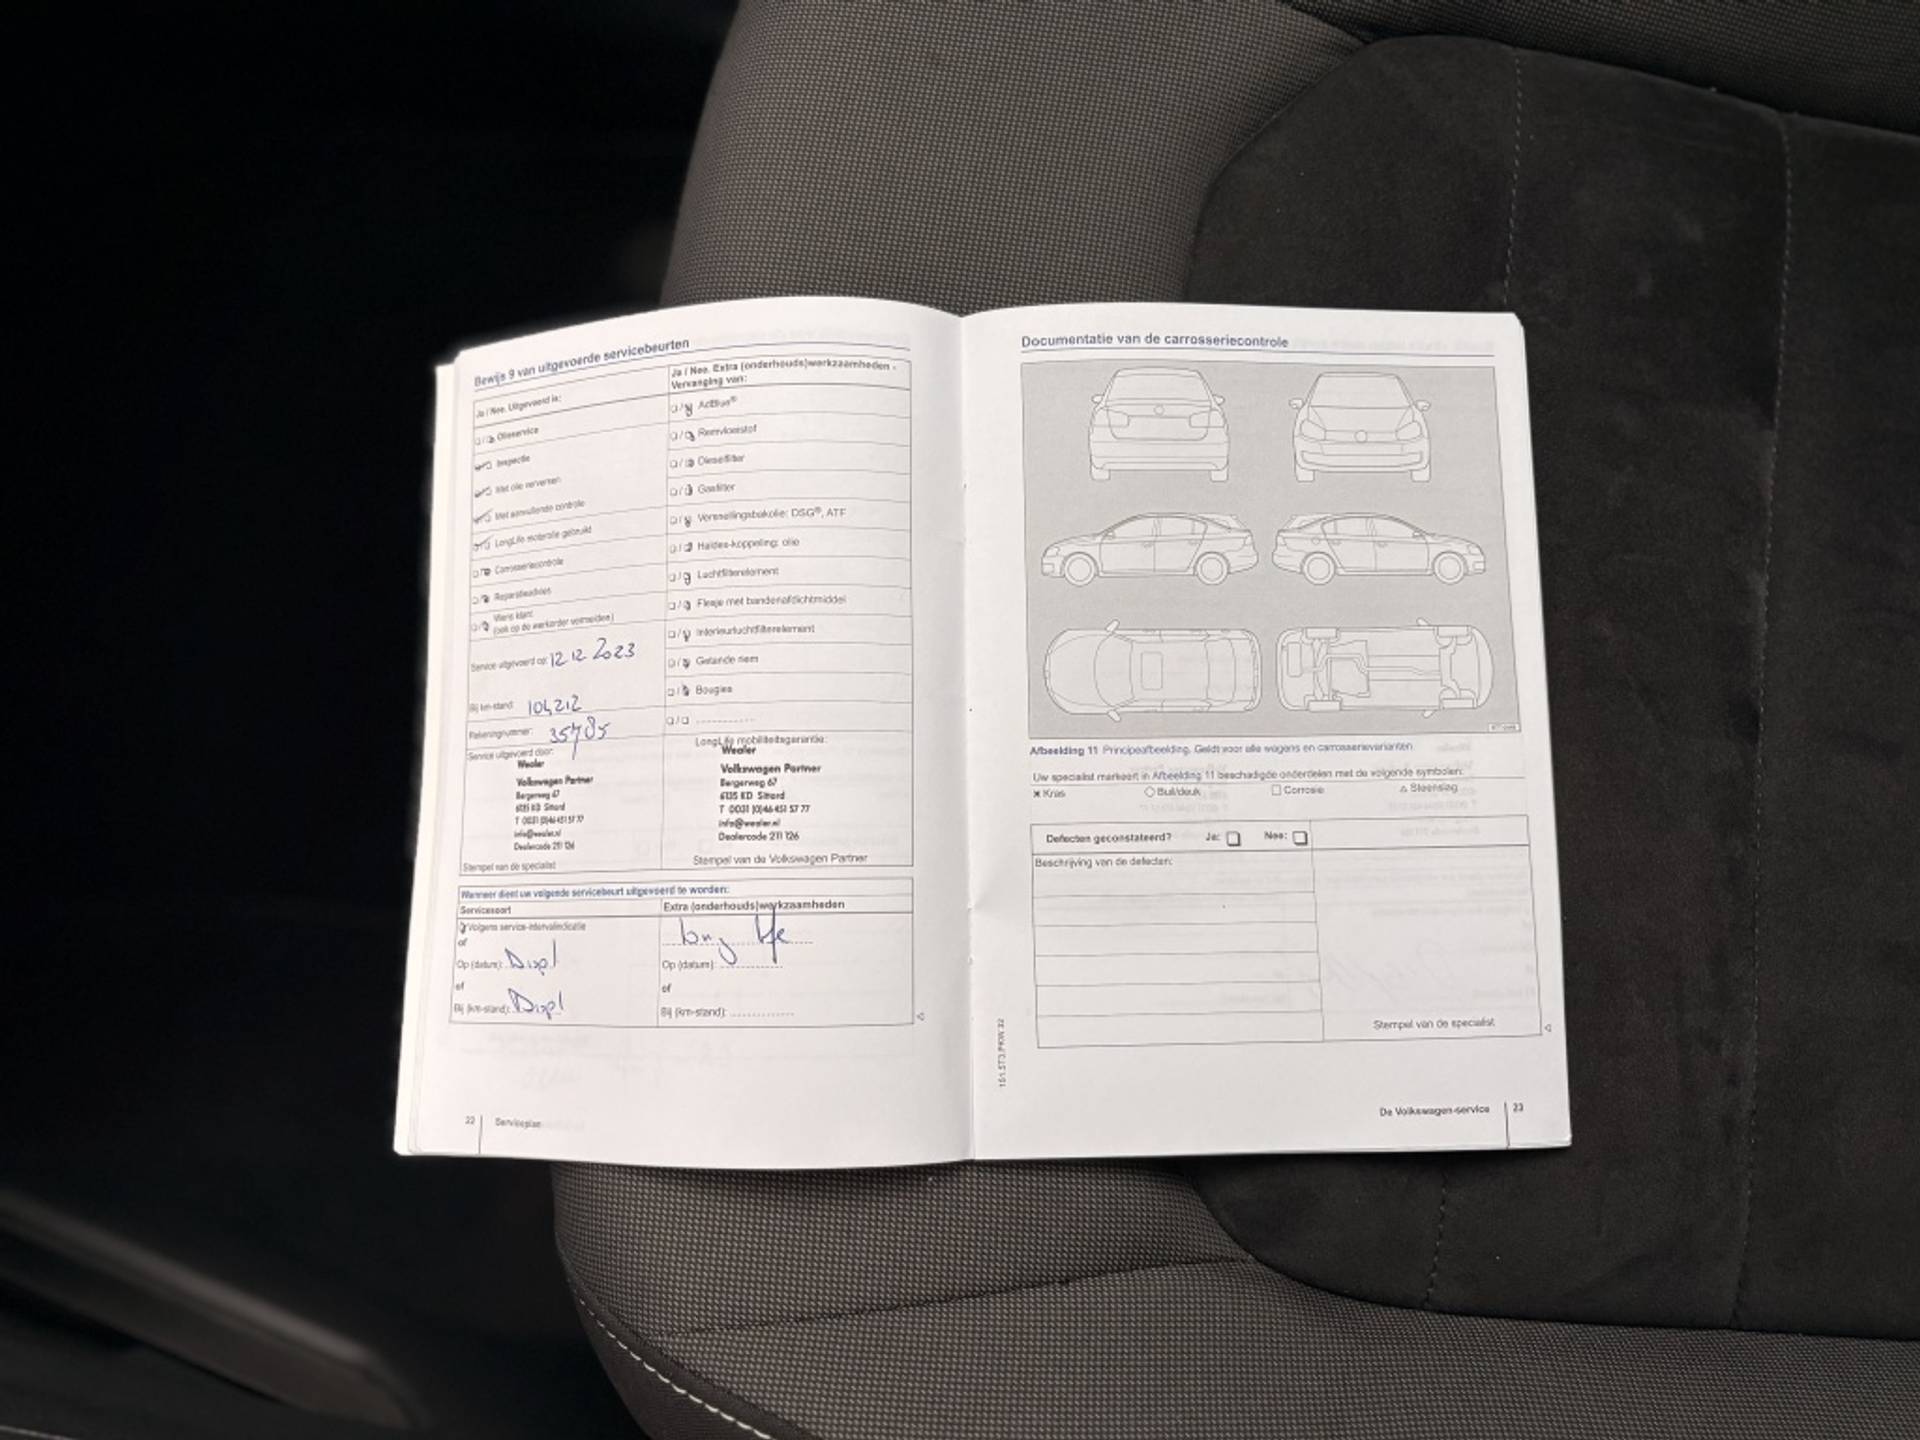 Bewijs 9 van uitgevoerde servicebeurten
Ja / Nee. Uitgevoerd is:
Olieservice
Inspectie
Met olie verversen
Met aanvullende controle
LongLife motorolie gebruikt
Carrosseriecontrole
Reparatieadvies
Wens klant
(ook op de werkorder vermelden)
Service uitgevoerd op: 12 12 2023
Bij km-stand: 104212
Rekeningnummer: 35785
Service uitgevoerd door:
Wealer
Volkswagen Partner
Bergerweg 67
6135 KD Sittard
T 0031 (0)46 451 57 77
info@wealer.nl
Dealercode 211 126
Stempel van de specialist
Ja / Nee. Extra (onderhouds)werkzaamheden -
Vervanging van:
AdBlue®
Remvloeistof
Dieselfilter
Gasfilter
Versnellingsbakolie: DSG®, ATF
Haldex-koppeling: olie
Luchtfilterelement
Flesje met bandenafdichtmiddel
Interieurluchtfilterelement
Getande riem
Bougies
LongLife mobiliteitsgarantie:
Wealer
Volkswagen Partner
Bergerweg 67
6135 KD Sittard
T 0031 (0)46 451 57 77
info@wealer.nl
Dealercode 211 126
Stempel van de Volkswagen Partner
Wanneer dient uw volgende servicebeurt uitgevoerd te worden:
Servicesoort
Volgens service-intervalindicatie
of
Op (datum): Displ
of
Bij (km-stand): Displ
Extra (onderhouds)werkzaamheden
long life
Op (datum):
of
Bij (km-stand):
22 Serviceplan
Documentatie van de carrosseriecontrole
Afbeelding 11 Principeafbeelding. Geldt voor alle wagens en carrosserievarianten
Uw specialist markeert in Afbeelding 11 beschadigde onderdelen met de volgende symbolen:
Kras Buil/deuk Corrosie Steenslag
Defecten geconstateerd? Ja: Nee:
Beschrijving van de defecten:
Stempel van de specialist
151.5T3.PKW.32
De Volkswagen-service 23